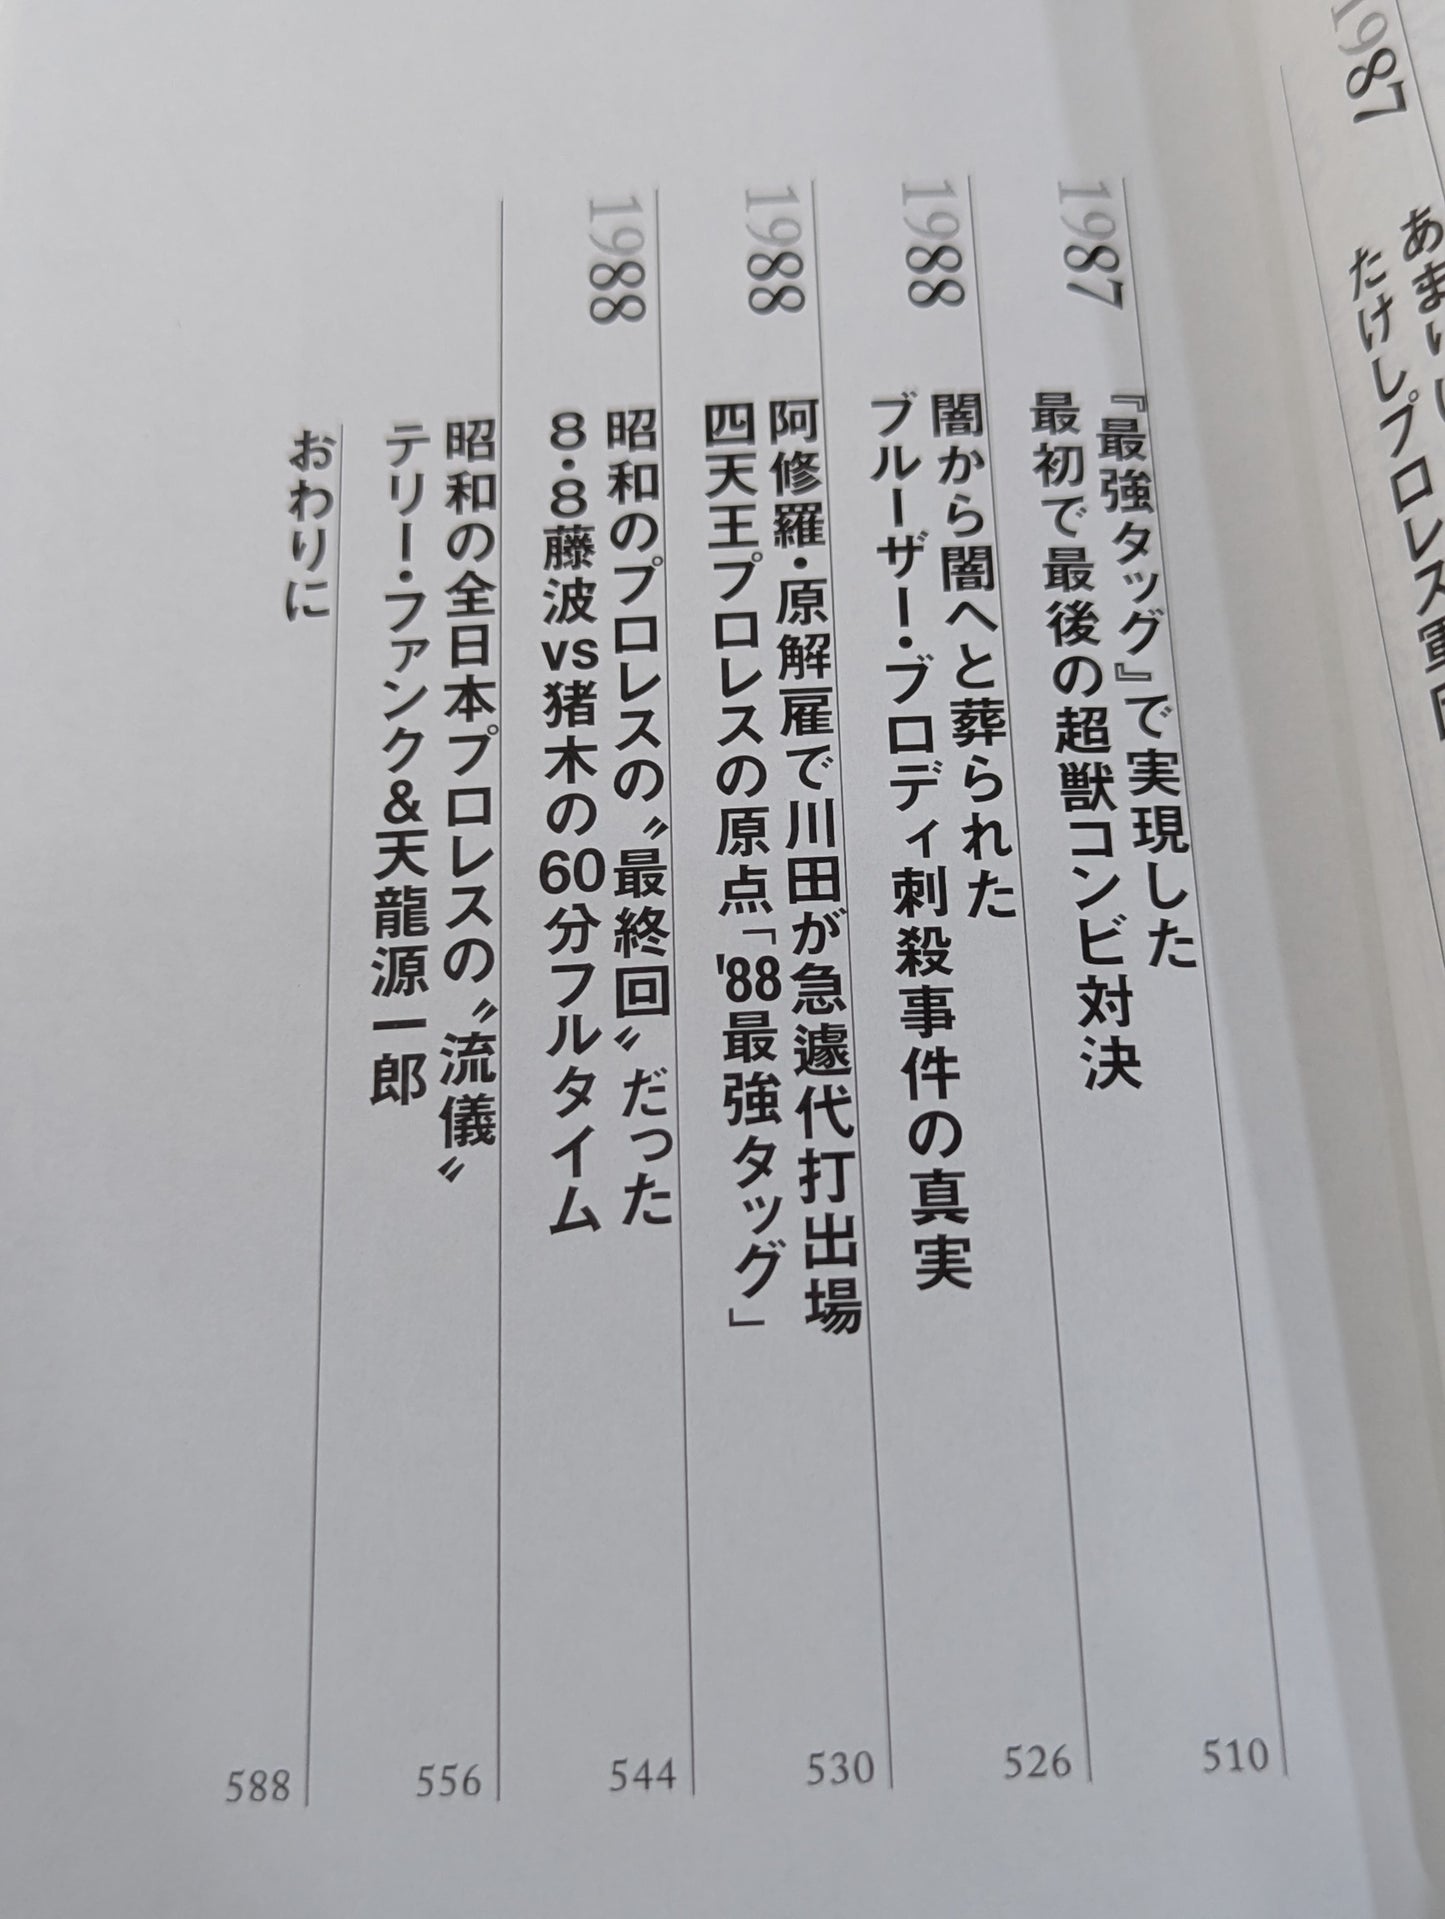 1987
たけしプロレス軍団
1987
『最強タッグ』で実現した
最初で最後の超獣コンビ対決
510
1988
闇から闇へと葬られた
ブルーザー・ブロディ刺殺事件の真実
526
1988
阿修羅・原解雇で川田が急遽代打出場
四天王プロレスの原点「'88最強タッグ」
530
1988
昭和のプロレスの〝最終回〟だった
8・8藤波vs猪木の60分フルタイム
544
昭和の全日本プロレスの〝流儀〟
テリー・ファンク&天龍源一郎
556
おわりに
588